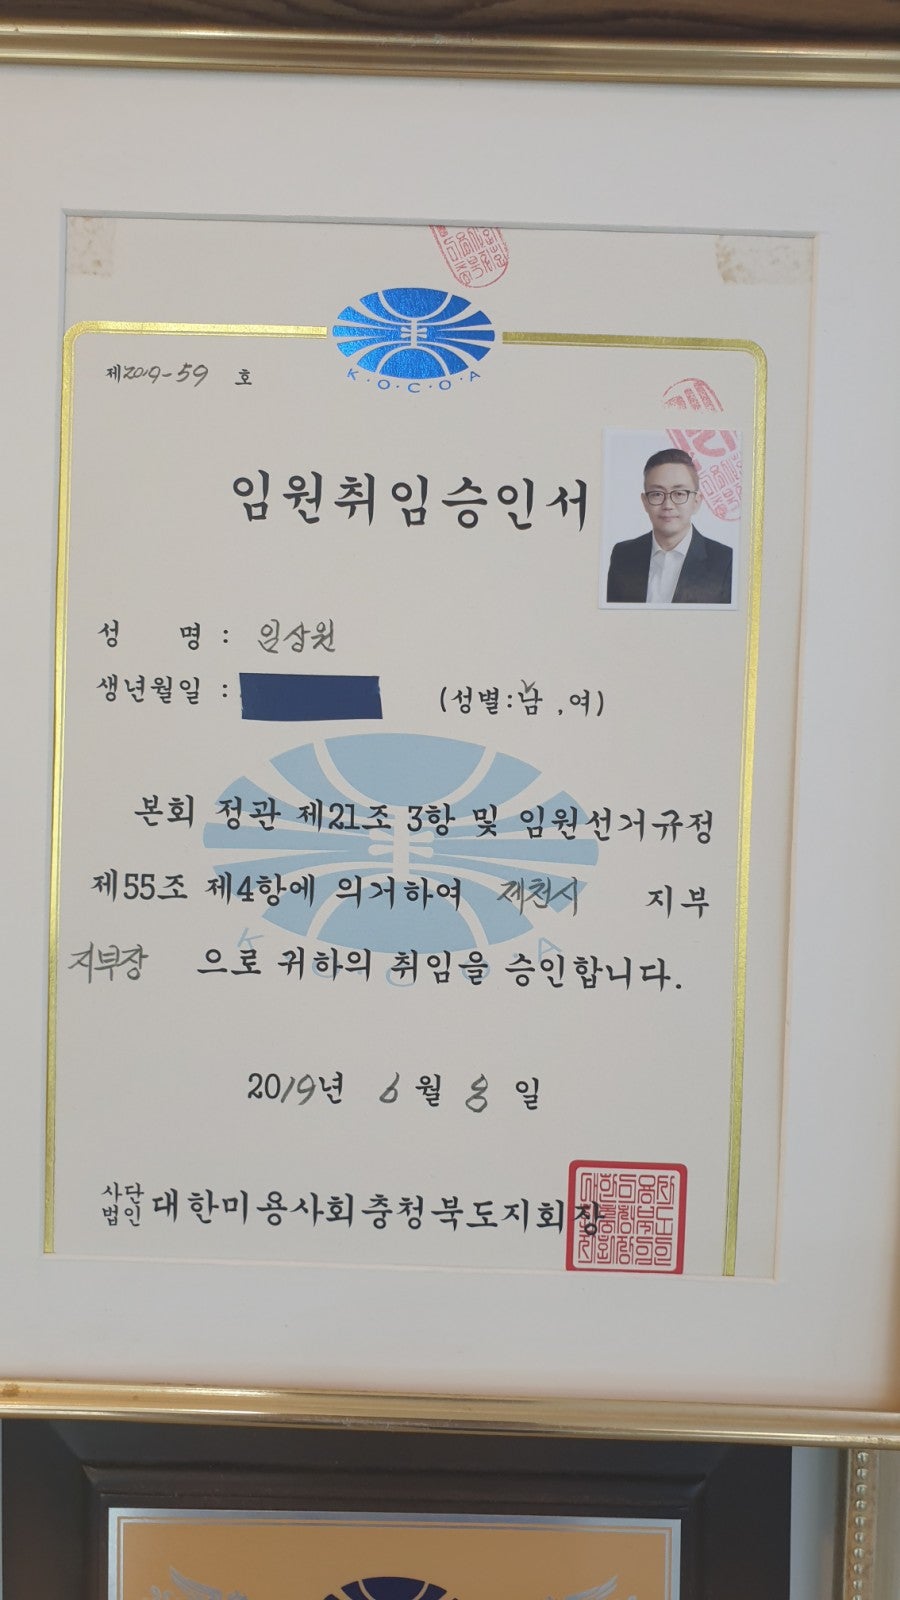 K·O·C·O·A
제2019-59 호
임원취임승인서
성 명 : 임상원
생년월일 : (성별:남,여)
본회 정관 제21조 3항 및 임원선거규정
제55조 제4항에 의거하여 제천시 지부
지부장 으로 귀하의 취임을 승인합니다.
2019년 6월 8일
사단법인 대한미용사회충청북도지회장